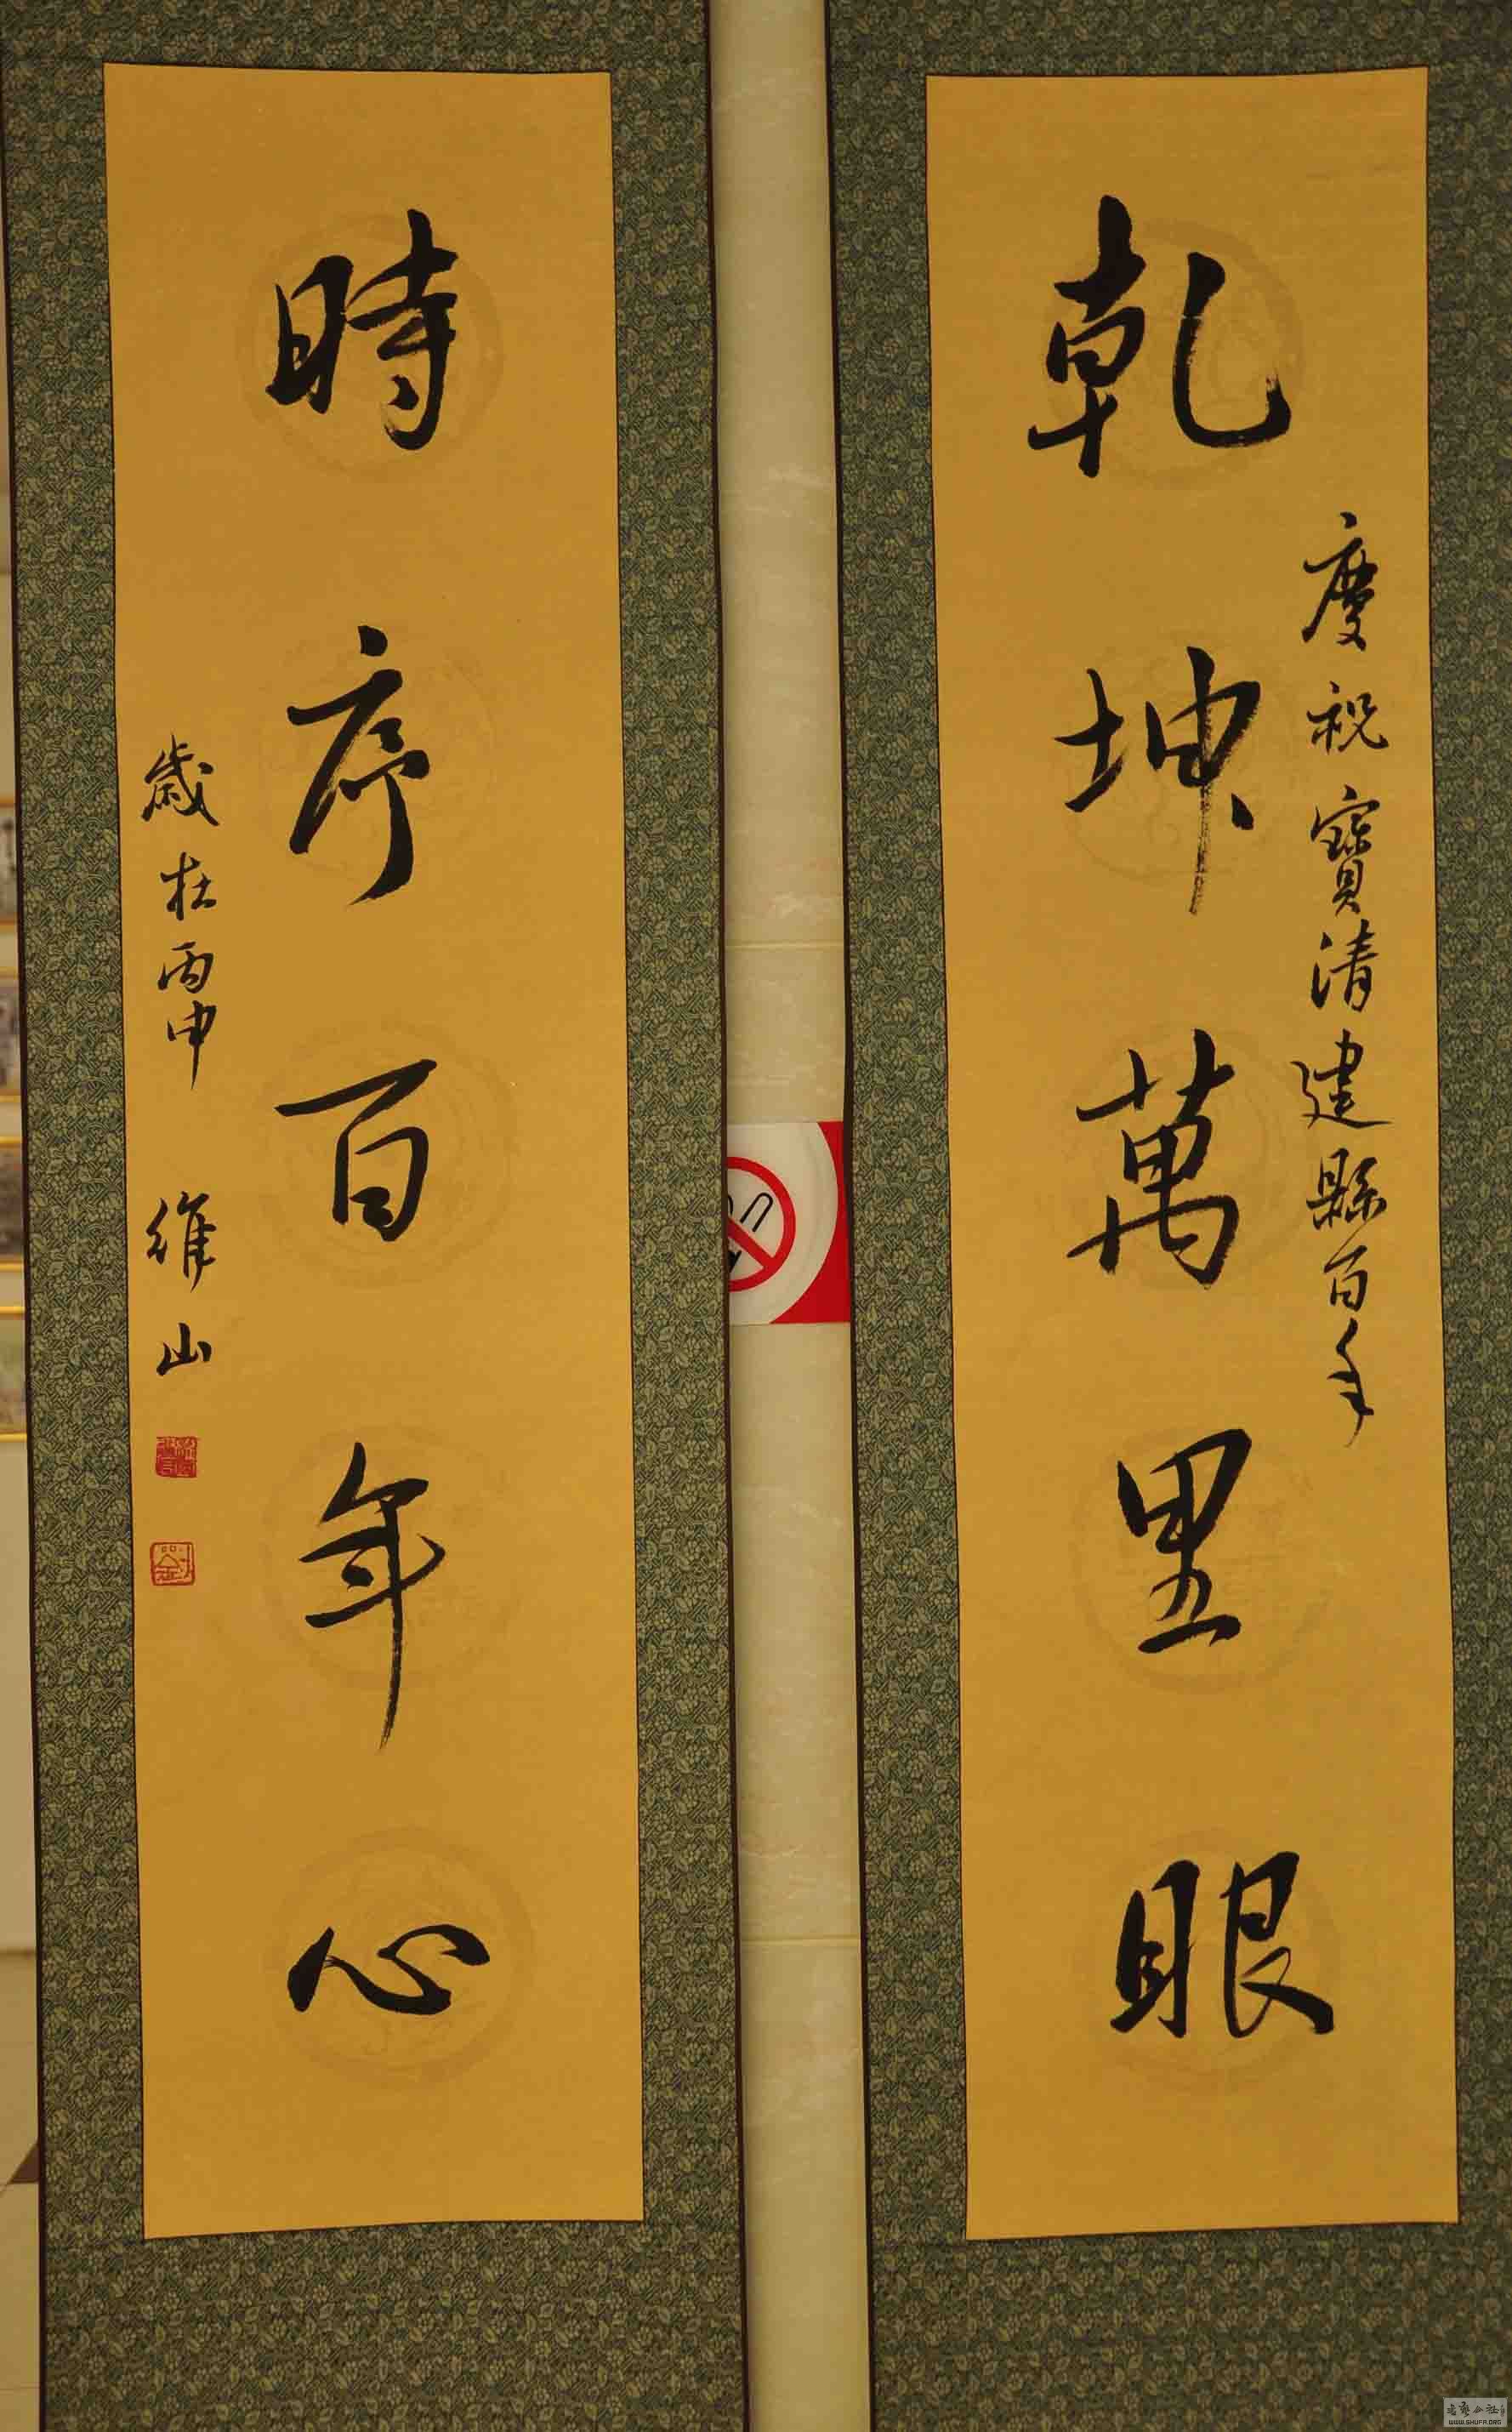 乾坤萬里眼
慶祝寶清建縣百年
時序百年心
歲在丙申 維山
WWW.SHUFA.ORG